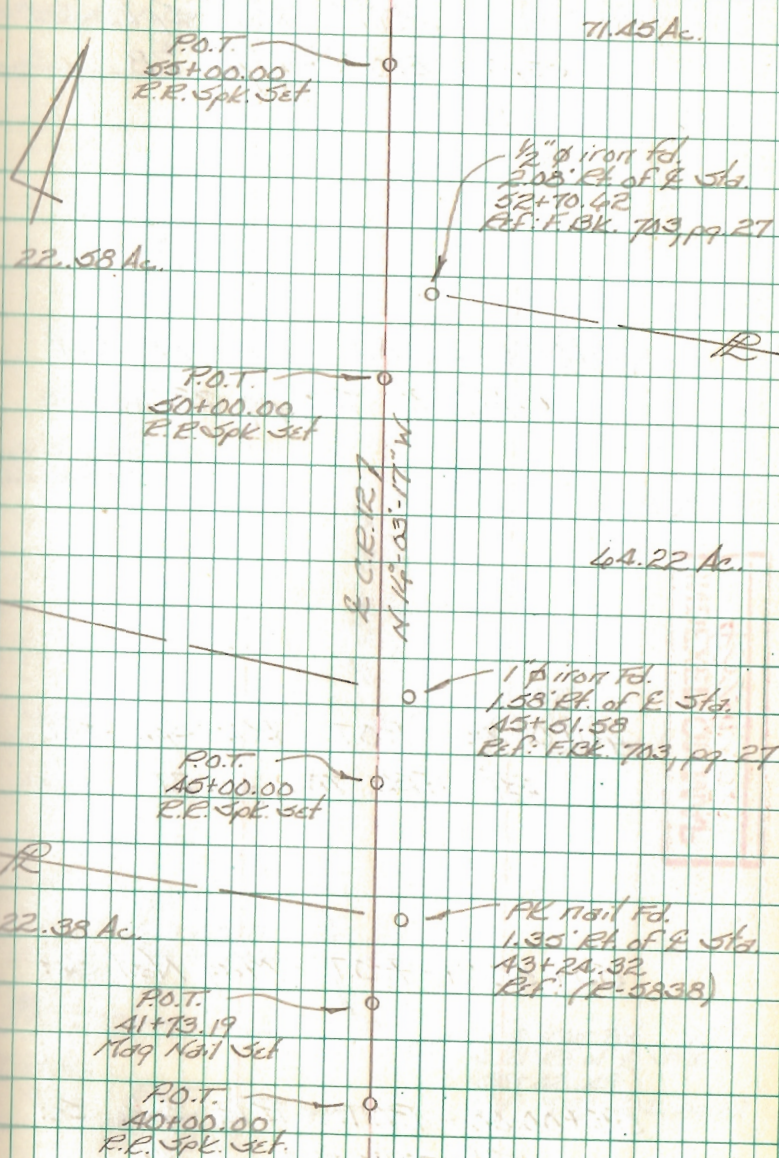 71.45 Ac.
P.O.T.
55+00.00
R.R. Spk. Set
1/2" ø iron fd.
2.08' Rt. of ℄ Sta.
52+70.42
Ref: F.Bk. 703, pg. 27
22.58 Ac.
℄
P.O.T.
50+00.00
R.R. Spk. Set
℄ C.R. 127
N 14°-03'-17" W
64.22 Ac.
1" ø iron Fd.
1.58' Rt. of ℄ Sta.
45+61.58
Ref: F.Bk. 703, pg. 27
P.O.T.
45+00.00
R.R. Spk. Set
PK nail Fd.
1.35' Rt. of ℄ Sta.
43+24.32
Ref: (R-5838)
22.38 Ac.
P.O.T.
41+73.19
Mag Nail Set
P.O.T.
40+00.00
R.R. Spk. Set.